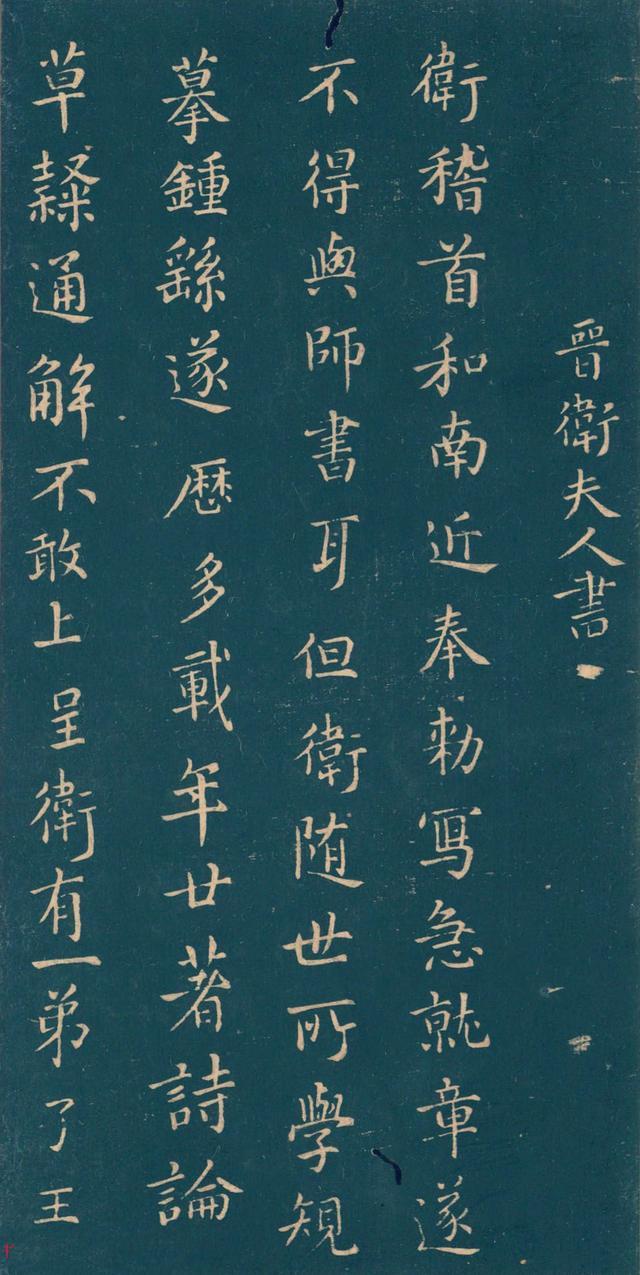 晉衛夫人書
衛稽首和南近奉勑寫急就章遂
不得與師書耳但衛随世所學規
摹鍾繇遂歷多載年廿著詩論
草隸通解不敢上呈衛有一弟了王